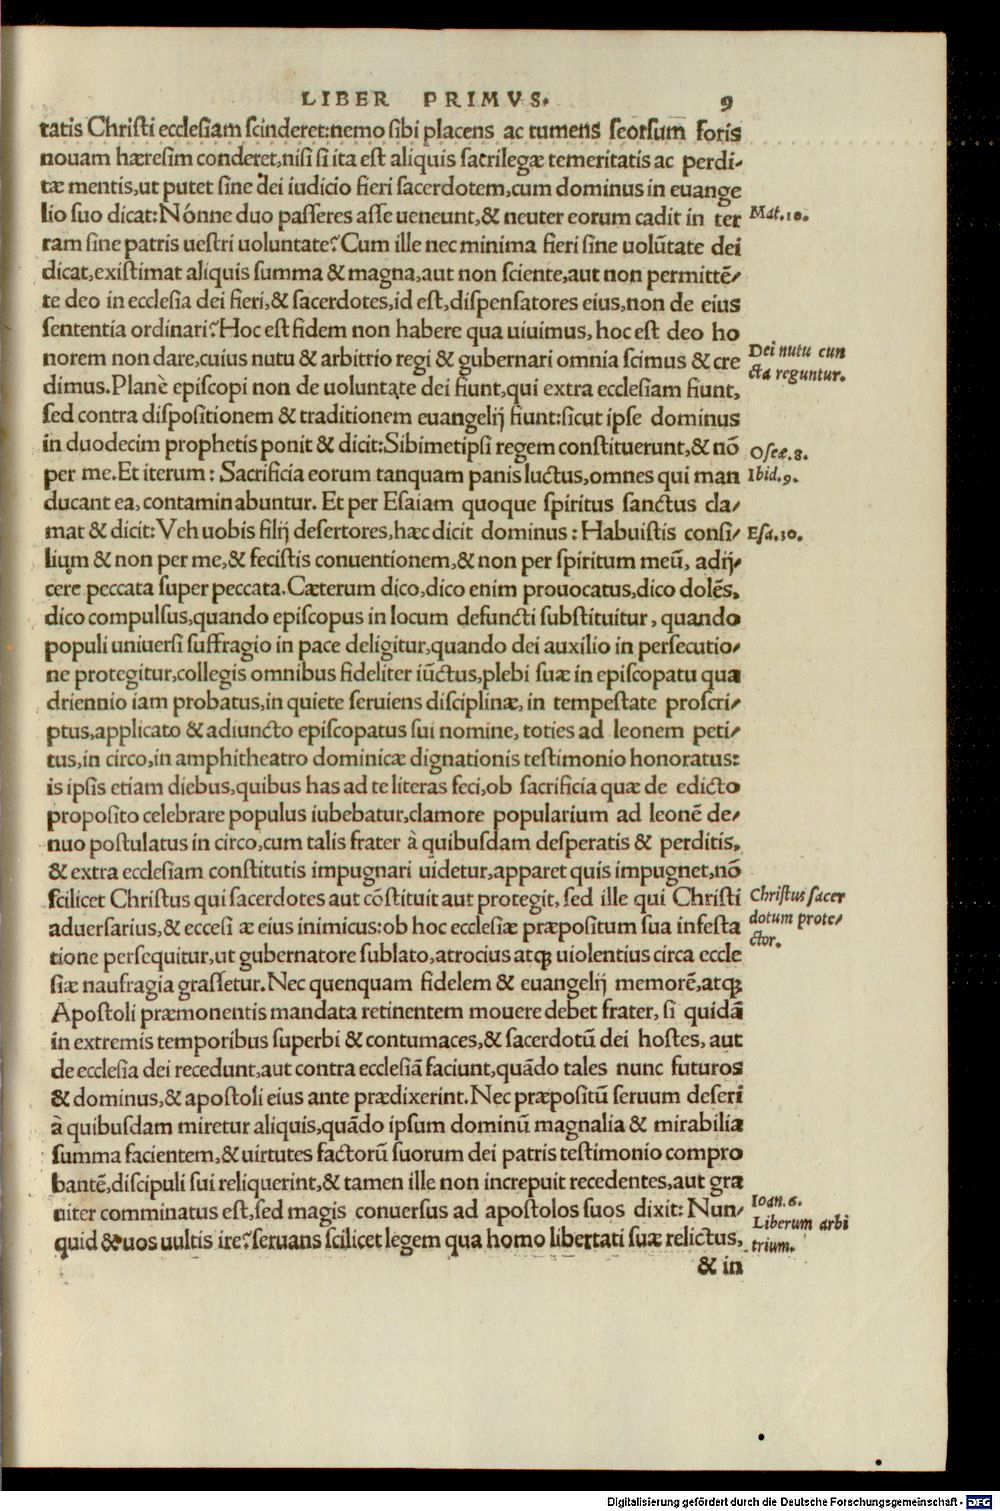 LIBER PRIMVS. 9
tatis Christi ecclesiam scinderet:nemo sibi placens ac tumens seorsum foris
nouam hæresim conderet,nisi si ita est aliquis sacrilegæ temeritatis ac perdi-
tæ mentis,ut putet sine dei iudicio fieri sacerdotem,cum dominus in euange
lio suo dicat:Nónne duo passeres asse ueneunt,& neuter eorum cadit in ter
Mat.10.
ram sine patris uestri uoluntate?Cum ille nec minima fieri sine uolũtate dei
dicat,existimat aliquis summa & magna,aut non sciente,aut non permittẽ-
te deo in ecclesia dei fieri,& sacerdotes,id est,dispensatores eius,non de eius
sententia ordinari?Hoc est fidem non habere qua uiuimus, hoc est deo ho
norem non dare,cuius nutu & arbitrio regi & gubernari omnia scimus & cre
Dei nutu cun
cta reguntur.
dimus.Planè episcopi non de uoluntate dei fiunt,qui extra ecclesiam fiunt,
sed contra dispositionem & traditionem euangelij fiunt:sicut ipse dominus
in duodecim prophetis ponit & dicit:Sibimetipsi regem constituerunt,& nõ
Oseæ.8.
per me.Et iterum: Sacrificia eorum tanquam panis luctus,omnes qui man
Ibid.9.
ducant ea, contaminabuntur. Et per Esaiam quoque spiritus sanctus cla-
mat & dicit: Veh uobis filij desertores,hæc dicit dominus: Habuistis consi-
Esa.30.
lium & non per me,& fecistis conuentionem,& non per spiritum meũ, adij-
cere peccata super peccata.Cæterum dico,dico enim prouocatus,dico dolẽs,
dico compulsus,quando episcopus in locum defuncti substituitur, quando
populi uniuersi suffragio in pace deligitur,quando dei auxilio in persecutio-
ne protegitur,collegis omnibus fideliter iũctus,plebi suæ in episcopatu qua
driennio iam probatus,in quiete seruiens disciplinæ, in tempestate proscri-
ptus,applicato & adiuncto episcopatus sui nomine, toties ad leonem peti-
tus,in circo,in amphitheatro dominicæ dignationis testimonio honoratus:
is ipsis etiam diebus,quibus has ad te literas feci,ob sacrificia quæ de edicto
proposito celebrare populus iubebatur,clamore popularium ad leonẽ de-
nuo postulatus in circo,cum talis frater à quibusdam desperatis & perditis,
& extra ecclesiam constitutis impugnari uidetur,apparet quis impugnet,nõ
scilicet Christus qui sacerdotes aut cõstituit aut protegit, sed ille qui Christi
Christus sacer
dotum prote-
ctor.
aduersarius,& eccesi æ eius inimicus:ob hoc ecclesiæ præpositum sua infesta
tione persequitur,ut gubernatore sublato,atrocius atq; uiolentius circa eccle
siæ naufragia grassetur.Nec quenquam fidelem & euangelij memorẽ,atq;
Apostoli præmonentis mandata retinentem mouere debet frater, si quidã
in extremis temporibus superbi & contumaces,& sacerdotũ dei hostes, aut
de ecclesia dei recedunt,aut contra ecclesiã faciunt,quãdo tales nunc futuros
& dominus,& apostoli eius ante prædixerint.Nec præpositũ seruum deseri
à quibusdam miretur aliquis,quãdo ipsum dominũ magnalia & mirabilia
summa facientem,& uirtutes factorũ suorum dei patris testimonio compro
bantẽ,discipuli sui reliquerint,& tamen ille non increpuit recedentes,aut gra
uiter comminatus est,sed magis conuersus ad apostolos suos dixit: Nun-
Ioan.6.
Liberum arbi
trium.
quid & uos uultis ire?seruans scilicet legem qua homo libertati suæ relictus,
& in
Digitalisierung gefördert durch die Deutsche Forschungsgemeinschaft - DFG